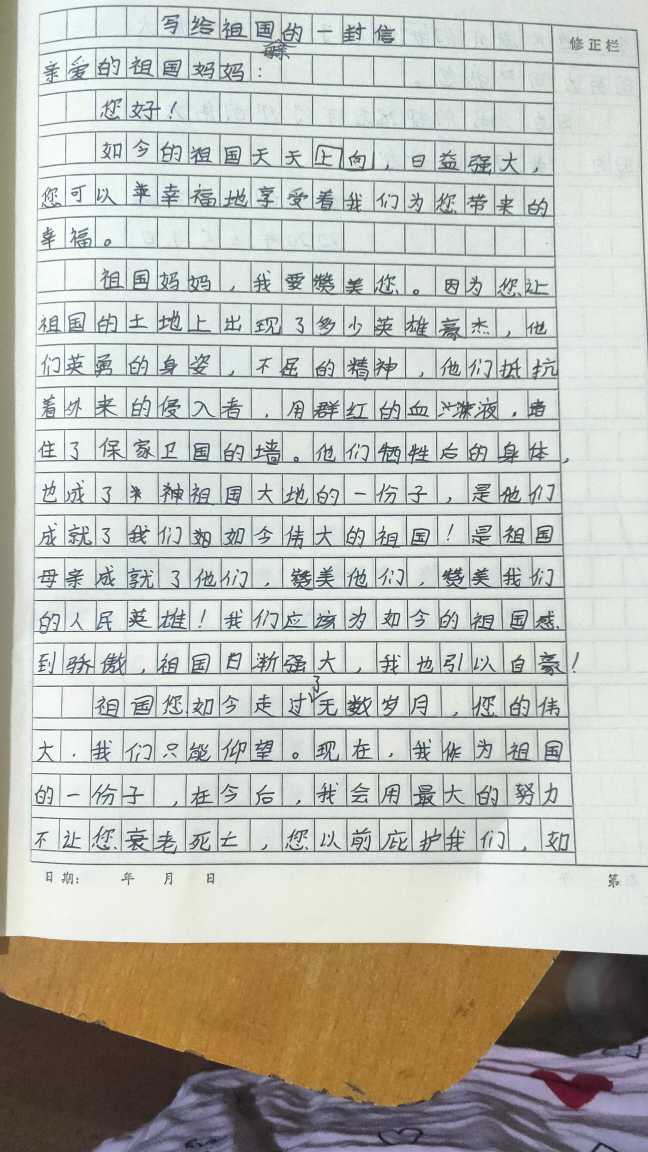 写给祖国的一封信
修正栏
亲爱的祖国妈妈：
您好！
如今的祖国天天上向，日益强大，
您可以幸福地享受着我们为您带来的
幸福。
祖国妈妈，我要赞美您。因为您让
祖国的土地上出现了多少英雄豪杰，他
们英勇的身姿，不屈的精神，他们抵抗
着外来的侵入者，用群红的血液，堵
住了保家卫国的墙。他们牺牲后的身体，
也成了神祖国大地的一份子，是他们
成就了我们如今伟大的祖国！是祖国
母亲成就了他们，赞美他们，赞美我们
的人民英雄！我们应该为如今的祖国感
到骄傲，祖国日渐强大，我也引以自豪！
祖国您如今走过了无数岁月，您的伟
大.我们只能仰望。现在，我作为祖国
的一份子，在今后，我会用最大的努力
不让您衰老死亡，您以前庇护我们，如
日期： 年 月 日 第